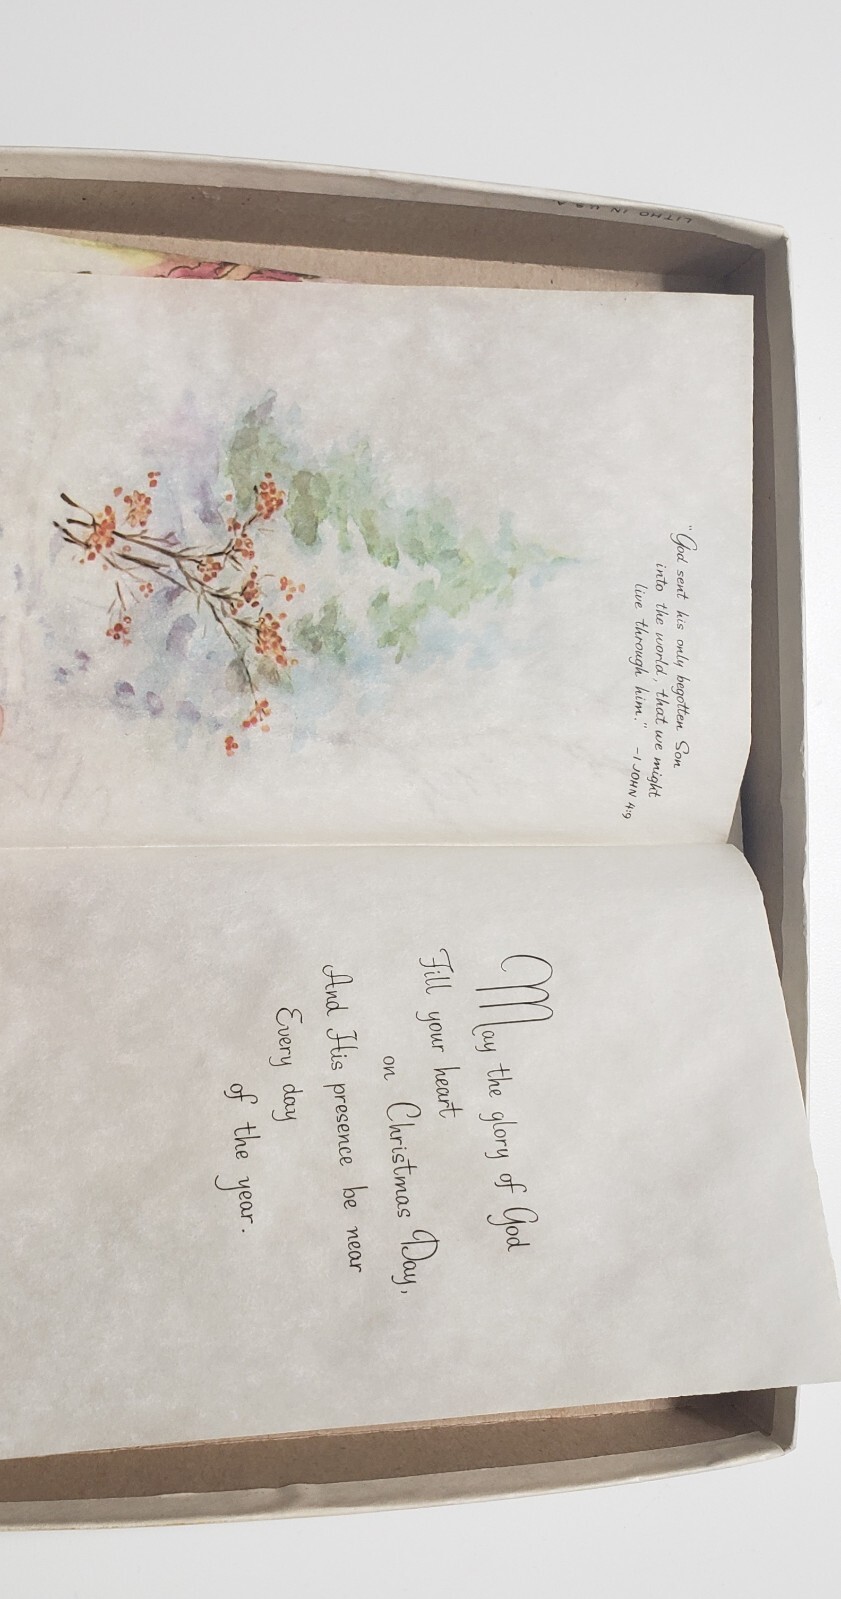 LITHO IN U.S.A.
"God sent his only begotten Son
into the world, that we might
live through him." -1 JOHN 4:9
May the glory of God
Fill your heart
on Christmas Day,
And His presence be near
Every day
of the year.